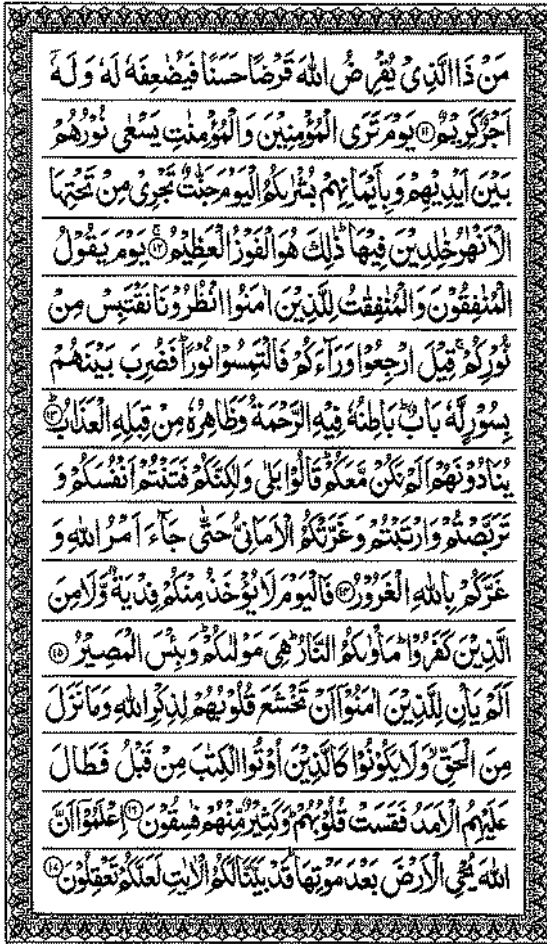 مَنْ ذَا الَّذِیْ یُقْرِضُ اللّٰهَ قَرْضًا حَسَنًا فَیُضٰعِفَهٗ لَهٗ وَ لَهٗۤ
اَجْرٌ كَرِیْمٌ ۝۱۱ یَوْمَ تَرَی الْمُؤْمِنِیْنَ وَ الْمُؤْمِنٰتِ یَسْعٰى نُوْرُهُمْ
بَیْنَ اَیْدِیْهِمْ وَ بِاَیْمَانِهِمْ بُشْرٰىكُمُ الْیَوْمَ جَنّٰتٌ تَجْرِیْ مِنْ تَحْتِهَا
الْاَنْهٰرُ خٰلِدِیْنَ فِیْهَاؕ ذٰلِكَ هُوَ الْفَوْزُ الْعَظِیْمُۚ ۝۱۲ یَوْمَ یَقُوْلُ
الْمُنٰفِقُوْنَ وَ الْمُنٰفِقٰتُ لِلَّذِیْنَ اٰمَنُوا انْظُرُوْنَا نَقْتَبِسْ مِنْ
نُّوْرِكُمْۚ قِیْلَ ارْجِعُوْا وَرَآءَكُمْ فَالْتَمِسُوْا نُوْرًاؕ فَضُرِبَ بَیْنَهُمْ
بِسُوْرٍ لَّهٗ بَابٌؕ بَاطِنُهٗ فِیْهِ الرَّحْمَةُ وَ ظَاهِرُهٗ مِنْ قِبَلِهِ الْعَذَابُؕ ۝۱۳
یُنَادُوْنَهُمْ اَلَمْ نَكُنْ مَّعَكُمْؕ قَالُوْا بَلٰى وَ لٰكِنَّكُمْ فَتَنْتُمْ اَنْفُسَكُمْ وَ
تَرَبَّصْتُمْ وَ ارْتَبْتُمْ وَ غَرَّتْكُمُ الْاَمَانِیُّ حَتّٰى جَآءَ اَمْرُ اللّٰهِ وَ
غَرَّكُمْ بِاللّٰهِ الْغَرُوْرُ ۝۱۴ فَالْیَوْمَ لَا یُؤْخَذُ مِنْكُمْ فِدْیَةٌ وَّ لَا مِنَ
الَّذِیْنَ كَفَرُوْاؕ مَاْوٰىكُمُ النَّارُؕ هِیَ مَوْلٰىكُمْؕ وَ بِئْسَ الْمَصِیْرُ ۝۱۵
اَلَمْ یَاْنِ لِلَّذِیْنَ اٰمَنُوْۤا اَنْ تَخْشَعَ قُلُوْبُهُمْ لِذِكْرِ اللّٰهِ وَ مَا نَزَلَ
مِنَ الْحَقِّۙ وَ لَا یَكُوْنُوْا كَالَّذِیْنَ اُوْتُوا الْكِتٰبَ مِنْ قَبْلُ فَطَالَ
عَلَیْهِمُ الْاَمَدُ فَقَسَتْ قُلُوْبُهُمْؕ وَ كَثِیْرٌ مِّنْهُمْ فٰسِقُوْنَ ۝۱۶ اِعْلَمُوْۤا اَنَّ
اللّٰهَ یُحْیِ الْاَرْضَ بَعْدَ مَوْتِهَاؕ قَدْ بَیَّنَّا لَكُمُ الْاٰیٰتِ لَعَلَّكُمْ تَعْقِلُوْنَ ۝۱۷